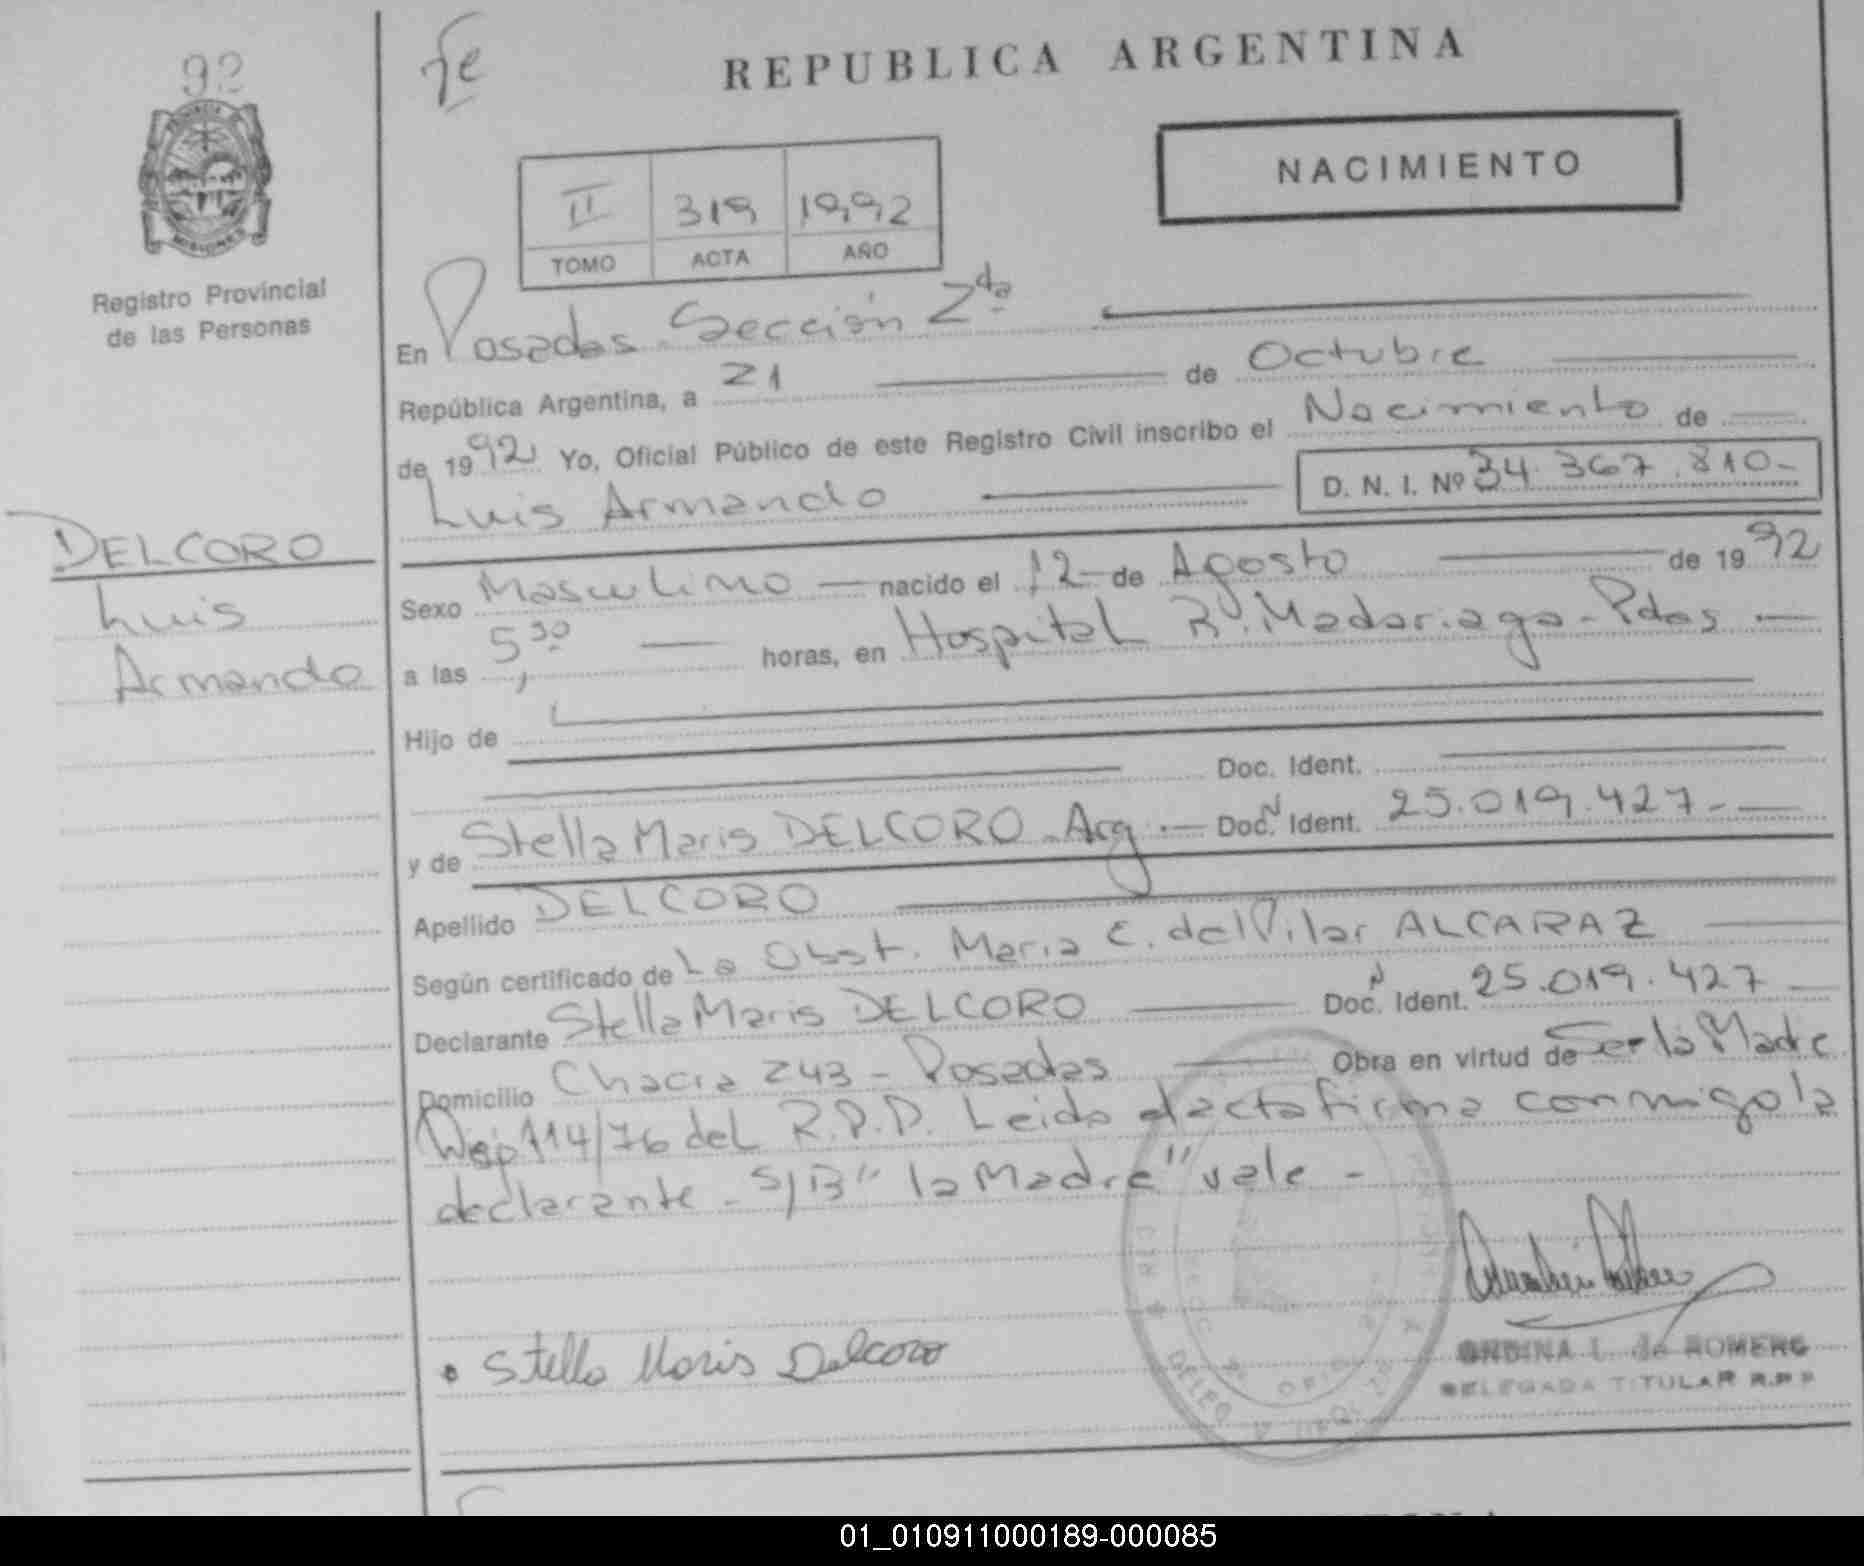 92
Fe
REPUBLICA ARGENTINA
NACIMIENTO
II 319 1992
TOMO ACTA AÑO
MISIONES
Registro Provincial
de las Personas
DELCORO
Luis
Armando
En Posadas Sección 2da
República Argentina, a 21 de Octubre
de 1992 Yo, Oficial Público de este Registro Civil inscribo el Nacimiento de
Luis Armando D. N. I. Nº 34.367.810-
Sexo Masculino nacido el 12 de Agosto de 1992
a las 5,30 horas, en Hospital R. Madariaga - Pdas
Hijo de
Doc. Ident.
y de Stella Maris DELCORO Arg. Doc. N Ident. 25.019.427-
Apellido DELCORO
Según certificado de La Obst. Maria E. del Pilar ALCARAZ
Declarante Stella Maris DELCORO Doc. N Ident. 25.019.427
Domicilio Chacra 243 - Posadas Obra en virtud de Ser la Madre
Disp 114/76 del R.P.P. Leida el acta firma conmigo la
declarante - S/B "la Madre" vale -
Stella Maris Delcoro
ONDINA L. de ROMERO
DELEGADA TITULAR R.P.P
01_010911000189-000085